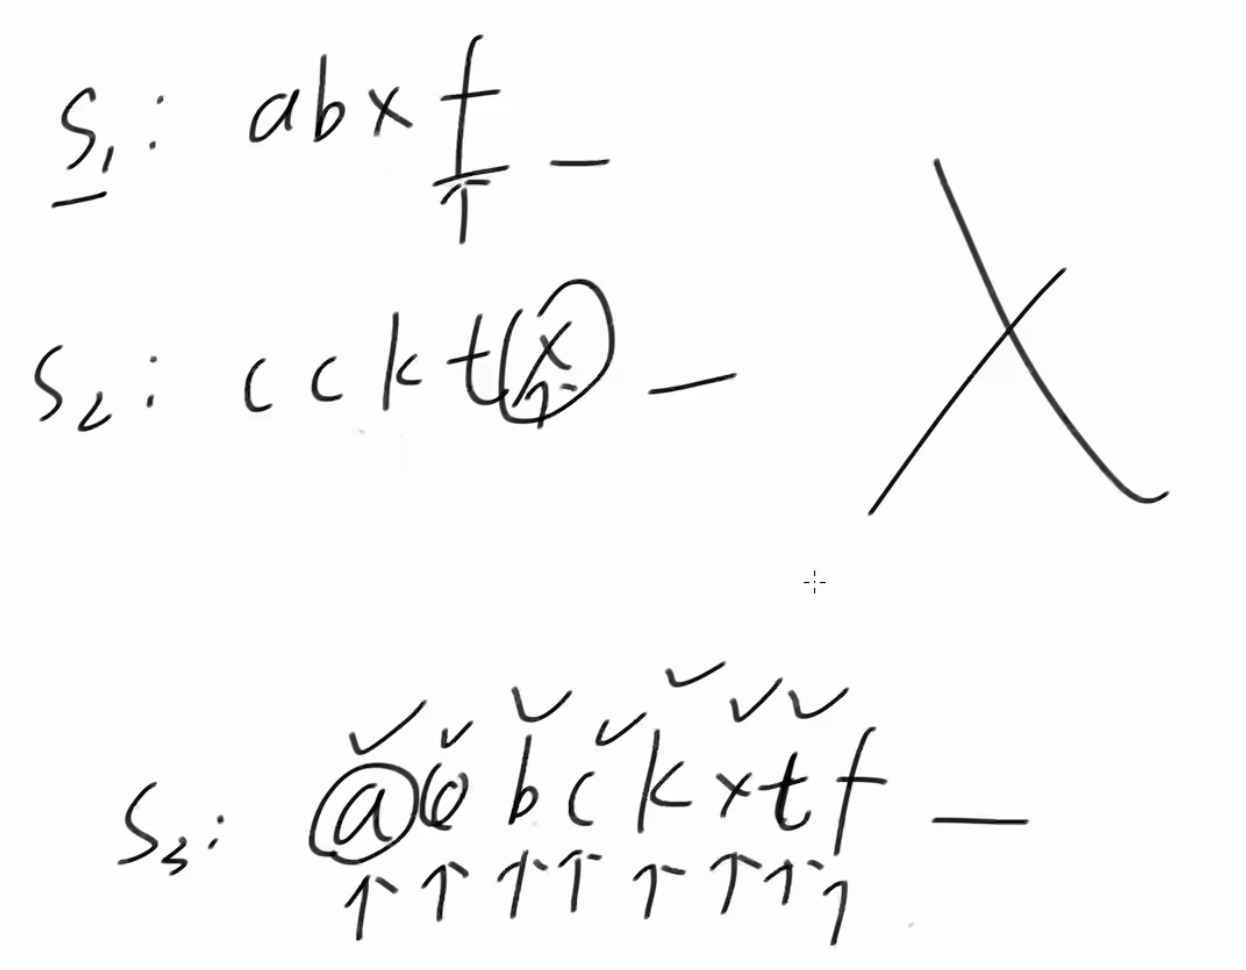 S₁: abxf _
S₂: ccktx _
S₃: acbckxtf _